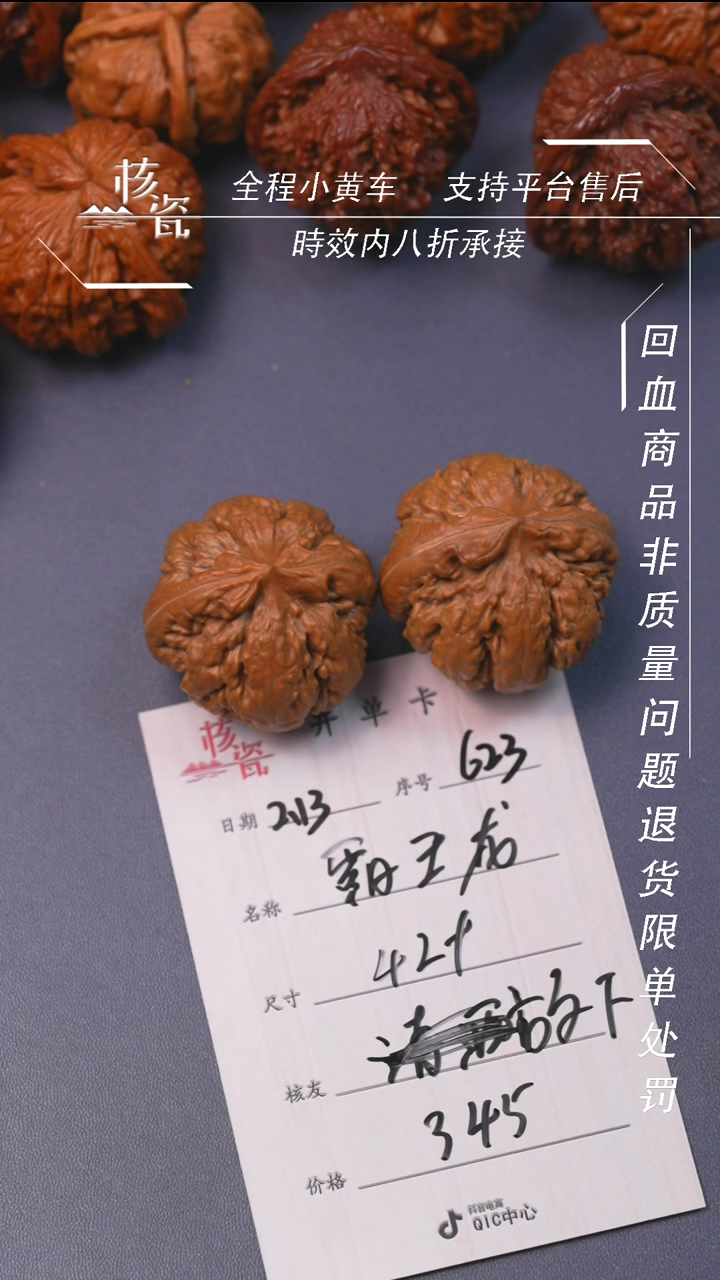 核瓷
全程小黄车 支持平台售后
時效内八折承接
回血商品非质量问题退货限单处罚
核瓷
开单卡
日期 2.13 序号 623
名称 霸王龙
尺寸 42+
核友 请 放下
价格 345
抖音电商
QIC中心